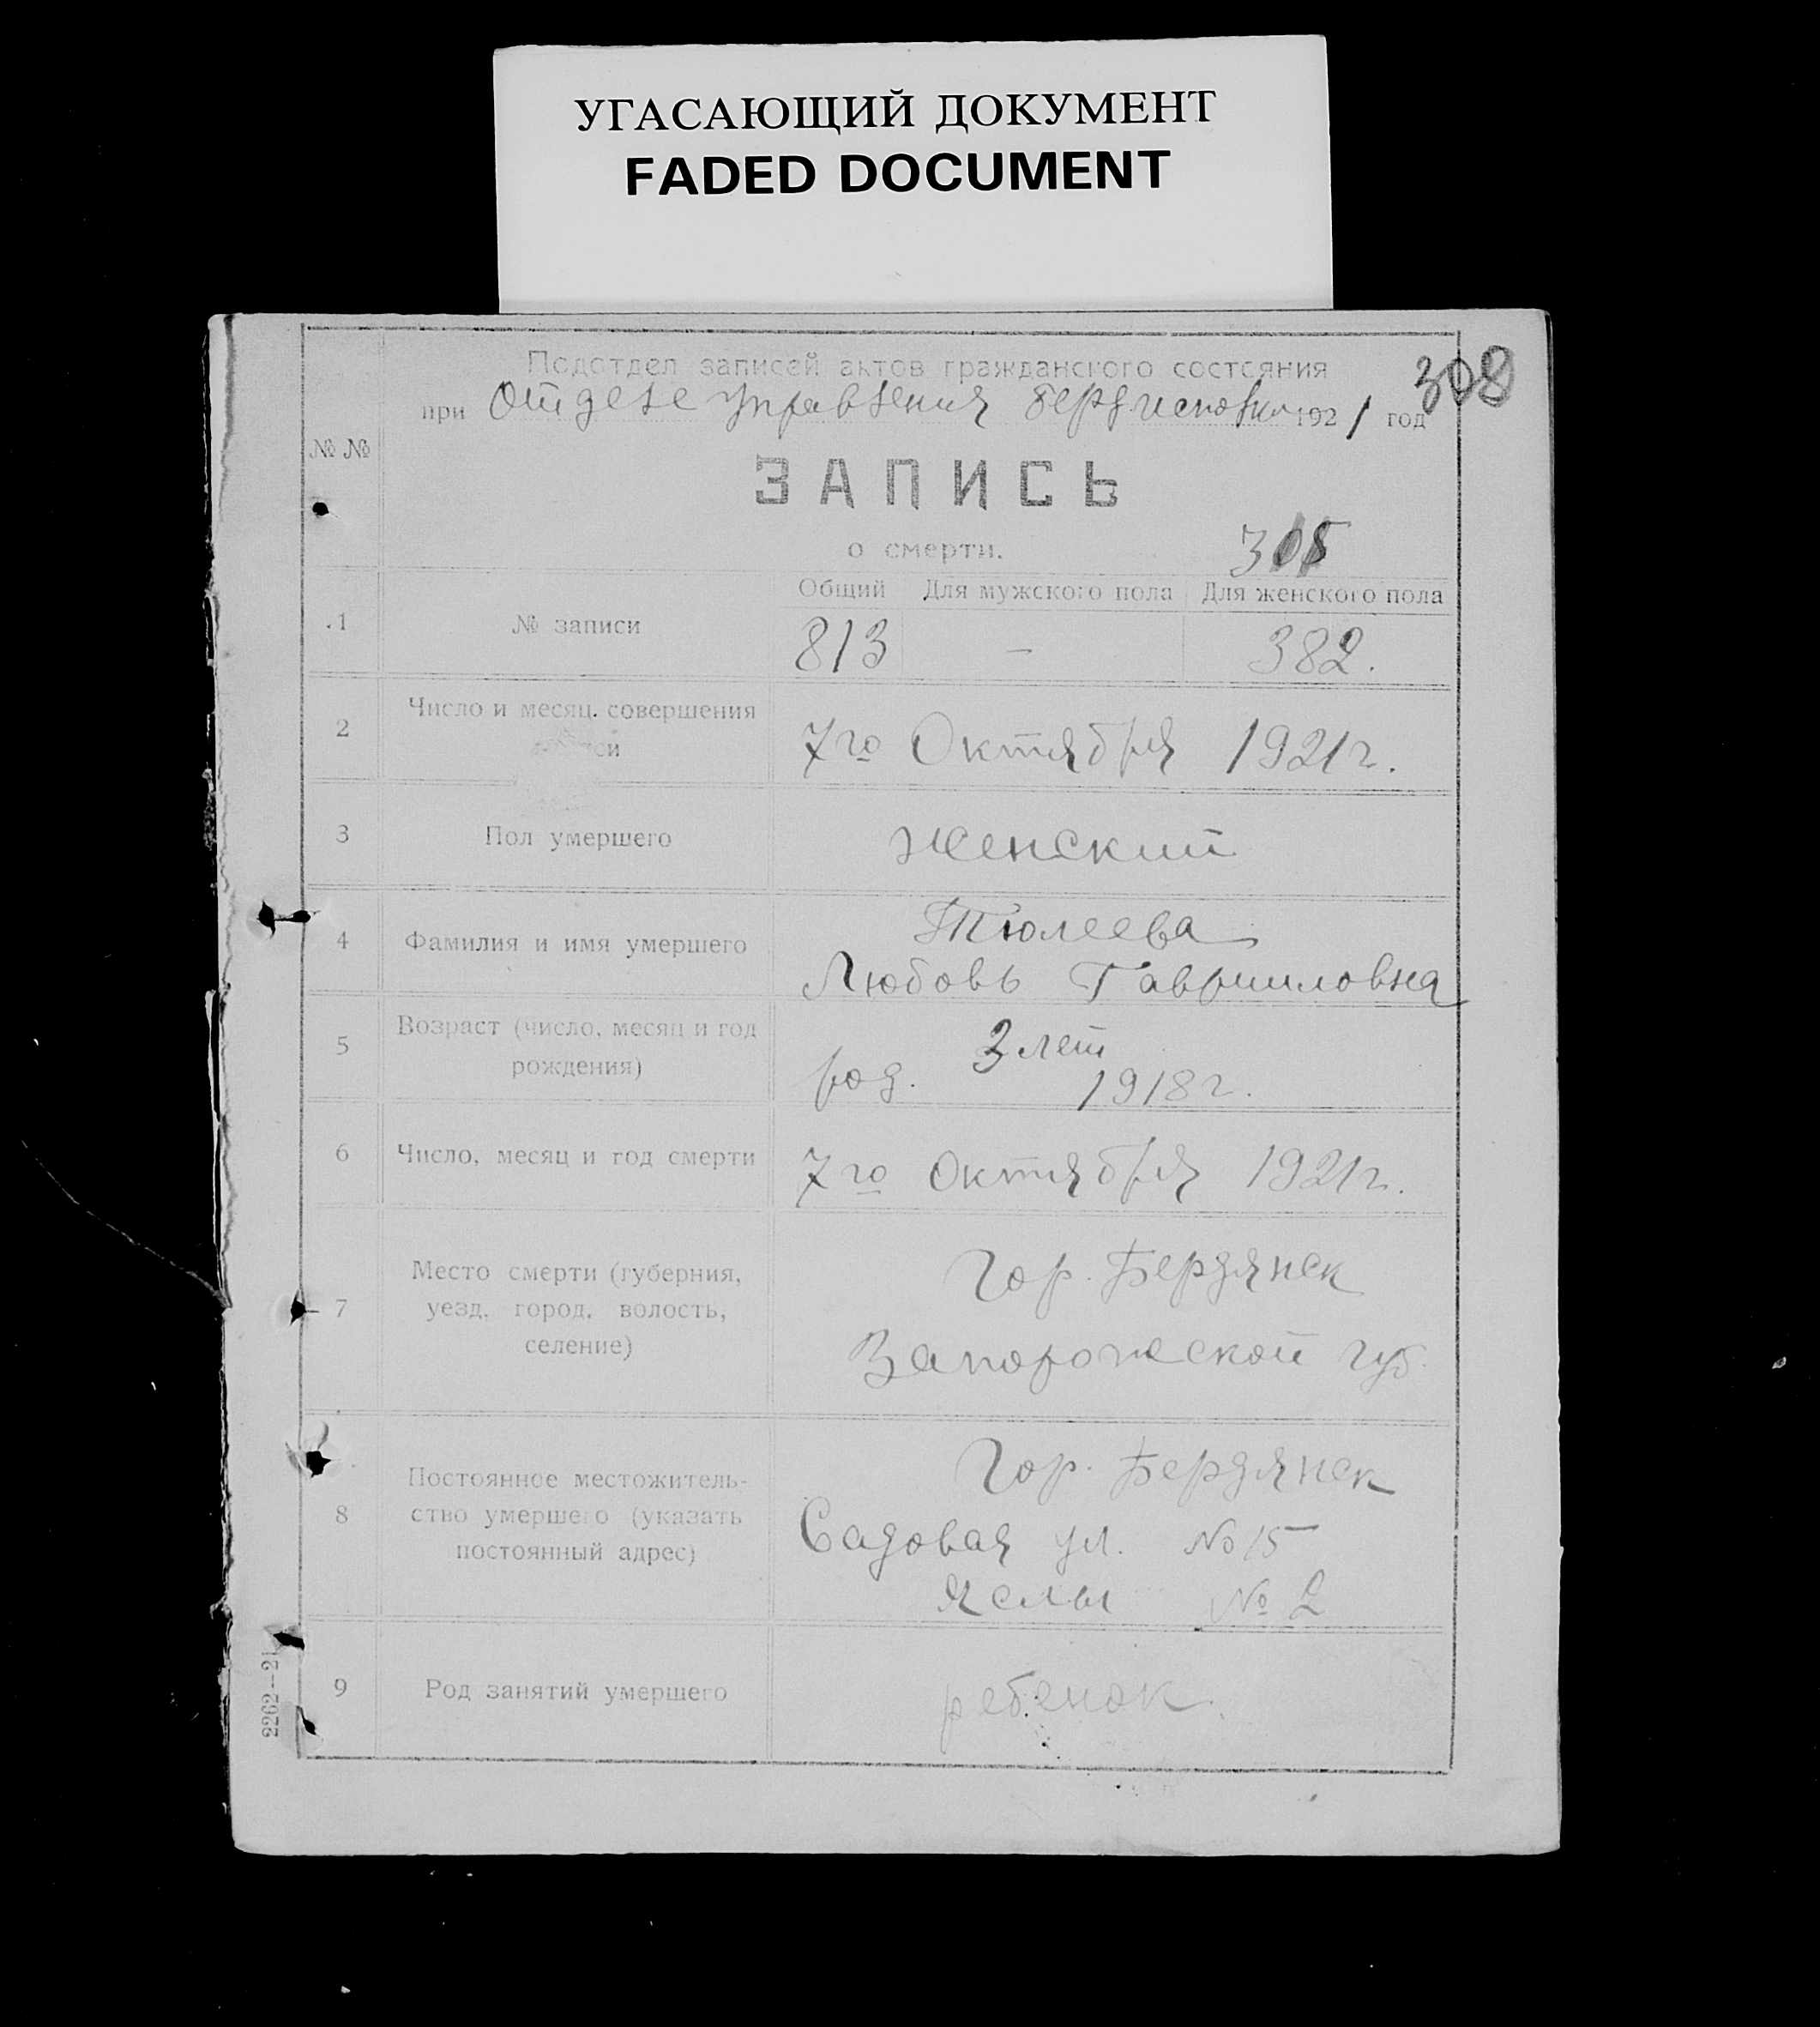 УГАСАЮЩИЙ ДОКУМЕНТ
FADED DOCUMENT
Подотдел записей актов гражданского состояния
308
при Отделе Управления 1921 год
№ №
ЗАПИСЬ
о смерти.
305
Общий Для мужского пола Для женского пола
1 № записи 813 — 382.
Число и месяц совершения
2 7го Октября 1921 г.
3 Пол умершего женский
Тюлеева
4 Фамилия и имя умершего
Любовь Гаврииловна
Возраст (число, месяц и год
5 3 лет
рождения) род. 1918 г.
6 Число, месяц и год смерти 7го Октября 1921 г.
Место смерти (губерния, Гор. Бердянск
7 уезд, город, волость,
селение) Запорожской губ.
Постоянное местожитель- Гор. Бердянск
8 ство умершего (указать Садовая ул. № 15
постоянный адрес) Яслы № 2
9 Род занятий умершего ребенок.
2262—21